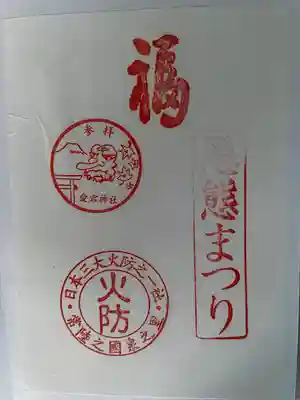 福
参拝
愛宕神社
悪態まつり
・日本三大火防之一社・
火防
常陸之國泉之里